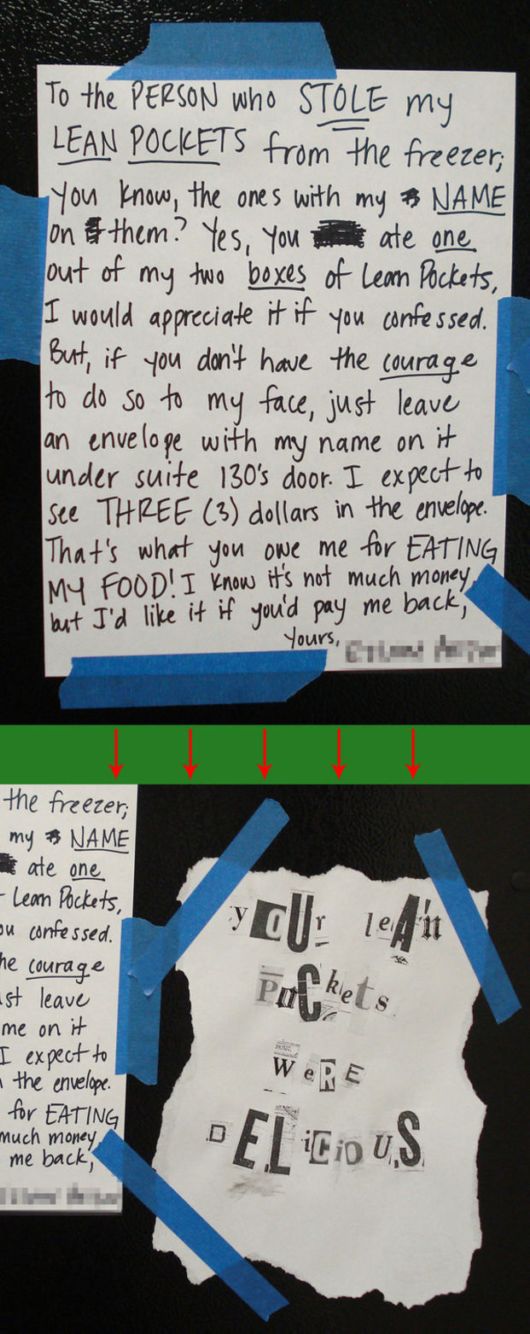 To the PERSON who STOLE my
LEAN POCKETS from the freezer;
You know, the ones with my NAME
on them? Yes, you ate one
out of my two boxes of Lean Pockets,
I would appreciate it if you confessed.
But, if you don't have the courage
to do so to my face, just leave
an envelope with my name on it
under suite 130's door. I expect to
see THREE (3) dollars in the envelope.
That's what you owe me for EATING
MY FOOD! I know it's not much money,
but I'd like it if you'd pay me back,
Yours,
the freezer;
my NAME
ate one
Lean Pockets,
ou confessed.
he courage
st leave
me on it
I expect to
the envelope.
for EATING
much money,
me back,
yOUr leAn
PocKets
WeRE
DELiciOUS